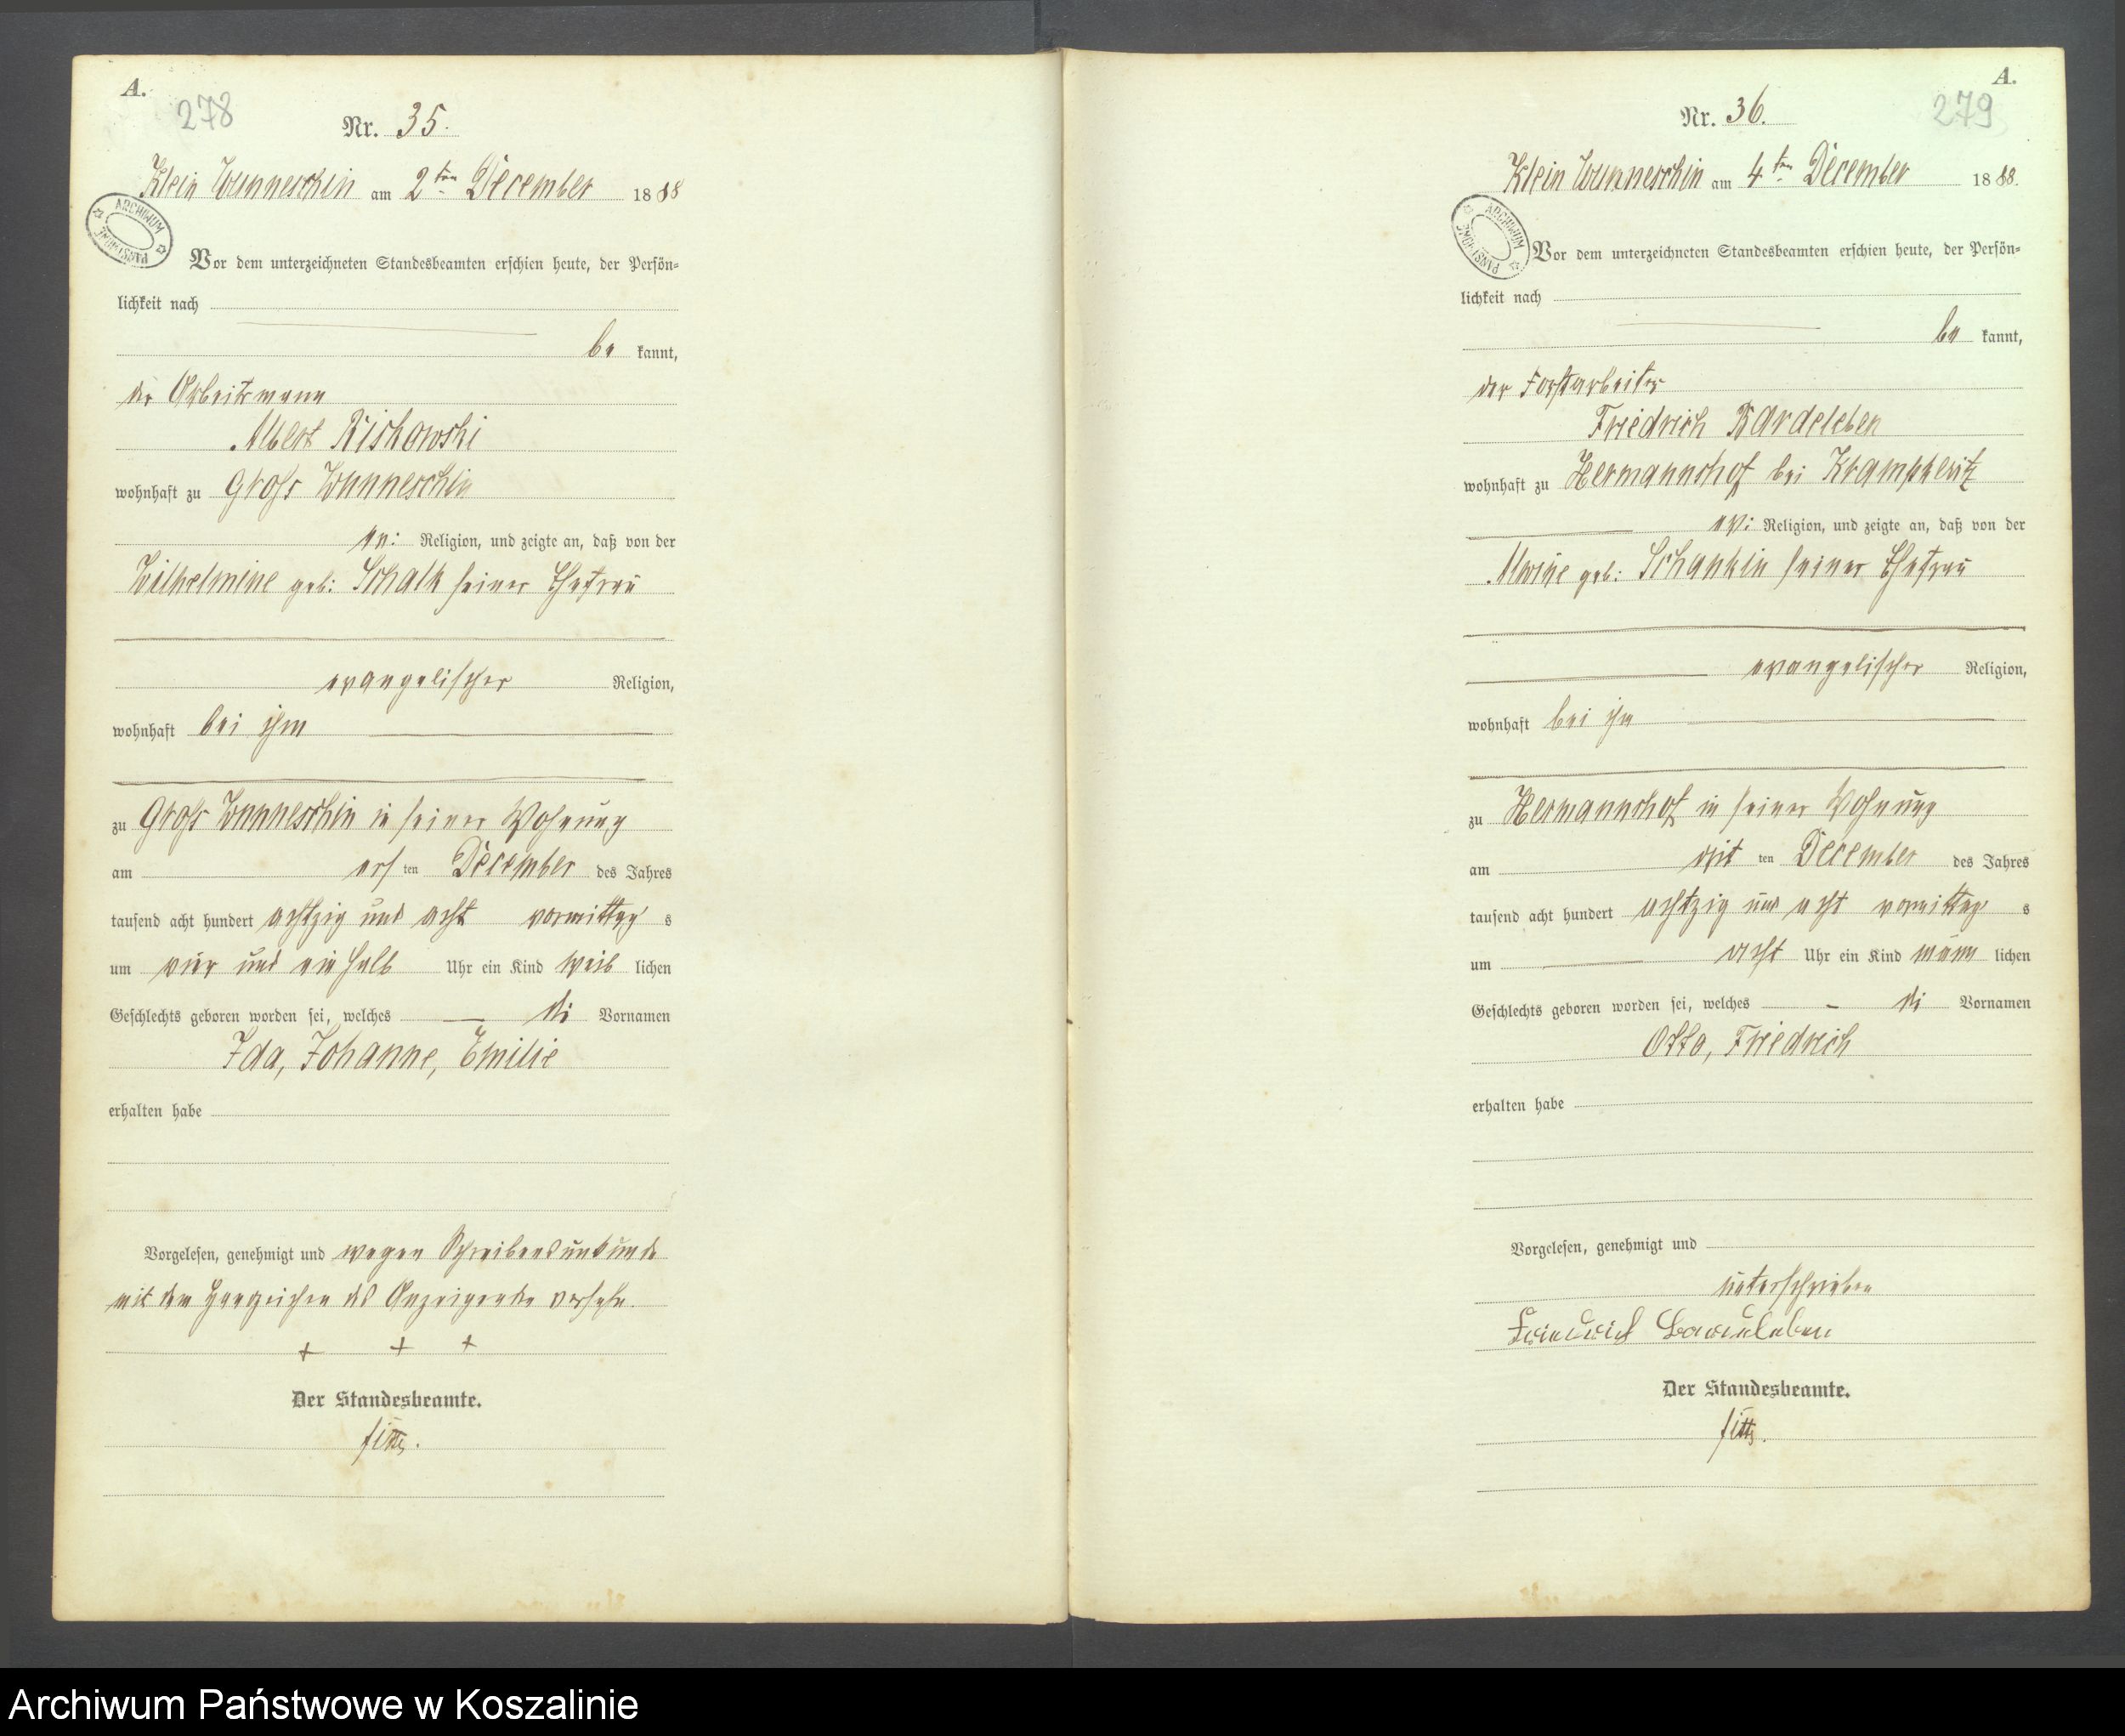 A.
278
Nr. 35.
Klein Wunneschin am 2ten December 1888
ARCHIWUM PAŃSTWOWE
Vor dem unterzeichneten Standesbeamten erschien heute, der Persön-
lichkeit nach
be kannt,
der Arbeitsmann
Albert Riskowski
wohnhaft zu Groß Wunneschin
ev: Religion, und zeigte an, daß von der
Wilhelmine geb: Schalk seiner Ehefrau
evangelischer Religion,
wohnhaft bei ihm
zu Groß Wunneschin in seiner Wohnung
am ersten December des Jahres
tausend acht hundert achtzig und acht vormittags
um vier und ein halb Uhr ein Kind weiblichen
Geschlechts geboren worden sei, welches die Vornamen
Ida, Johanne, Emilie
erhalten habe
Vorgelesen, genehmigt und wegen Schreibensunkunde
mit dem Handzeichen des Anzeigenden versehn.
+ + +
Der Standesbeamte.
A.
279
Nr. 36.
Klein Wunneschin am 4ten December 1888.
ARCHIWUM PAŃSTWOWE
Vor dem unterzeichneten Standesbeamten erschien heute, der Persön-
lichkeit nach
be kannt,
der Forstarbeiter
Friedrich Bardeleben
wohnhaft zu Hermannshof bei Krampkewitz
ev: Religion, und zeigte an, daß von der
geb: Schankin seiner Ehefrau
evangelischer Religion,
wohnhaft bei ihm
zu Hermannshof in seiner Wohnung
am dritten December des Jahres
tausend acht hundert achtzig und acht vormittags
um acht Uhr ein Kind männlichen
Geschlechts geboren worden sei, welches die Vornamen
Otto, Friedrich
erhalten habe
Vorgelesen, genehmigt und
unterschrieben
Friedrich Bardeleben
Der Standesbeamte.
Archiwum Państwowe w Koszalinie